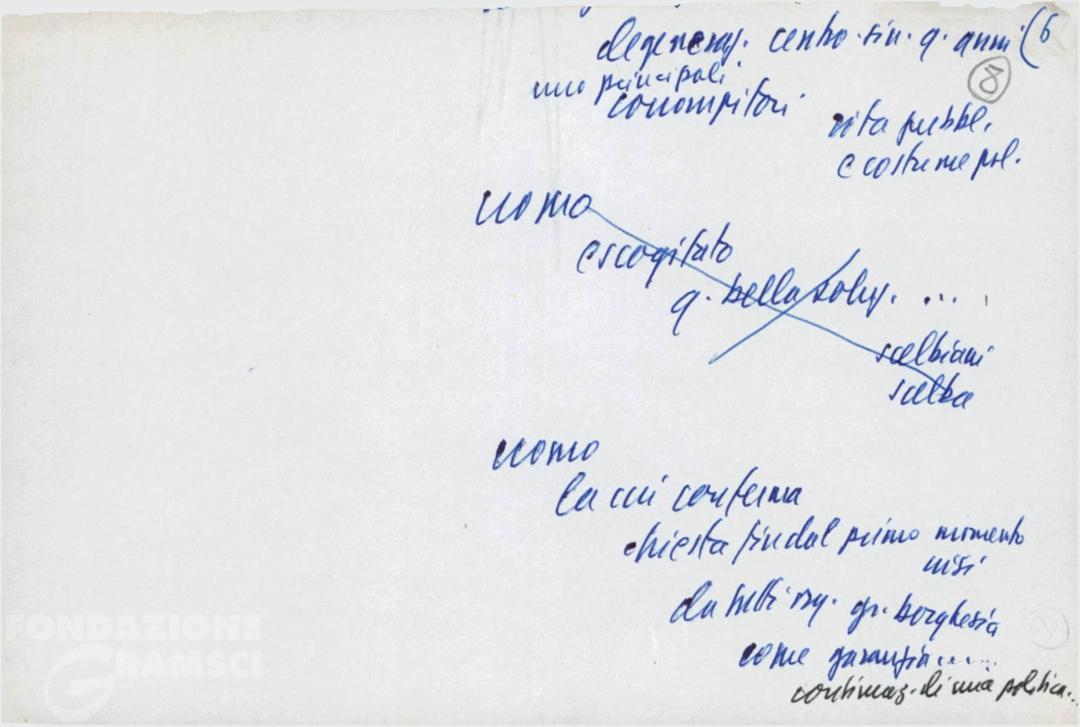 degeneraz. centro-sin. q. anni (6
8
uno principali
corrompitori
vita pubbl.
e costume pol.
uomo
escogitato
q. bella soluz. ...
scelbiani
scelba
uomo
la cui conferma
chiesta findal primo momento
crisi
da tutti org. gr. borghesia
come garanzia.....
continuaz. di una politica...
FONDAZIONE
GRAMSCI